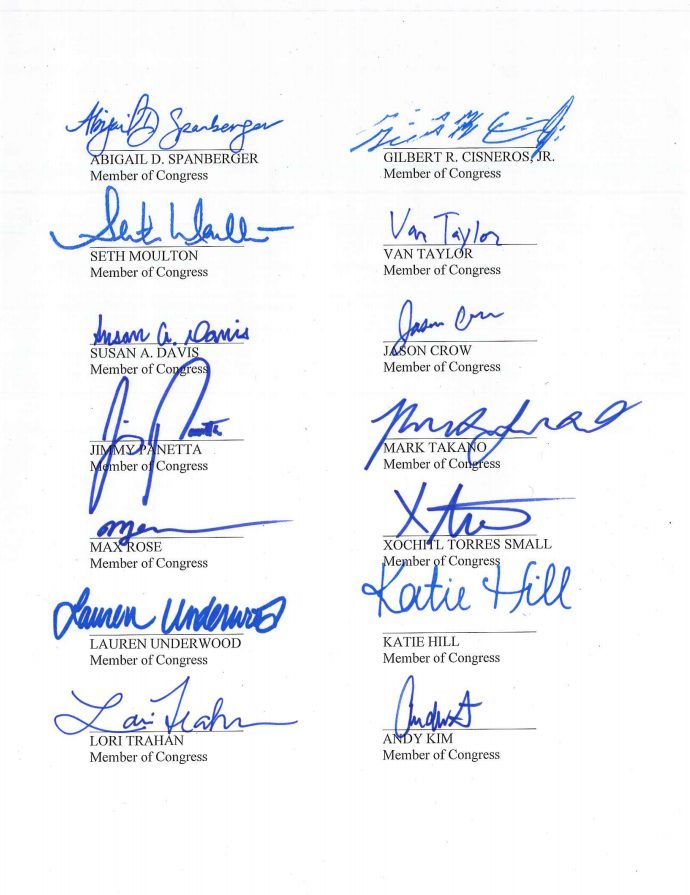 Abigail D Spanberger
ABIGAIL D. SPANBERGER
Member of Congress
GILBERT R. CISNEROS, JR.
Member of Congress
Seth Moulton
SETH MOULTON
Member of Congress
Van Taylor
VAN TAYLOR
Member of Congress
Susan A. Davis
SUSAN A. DAVIS
Member of Congress
Jason Crow
JASON CROW
Member of Congress
Jimmy Panetta
JIMMY PANETTA
Member of Congress
MARK TAKANO
Member of Congress
MAX ROSE
Member of Congress
XOCHITL TORRES SMALL
Member of Congress
Lauren Underwood
LAUREN UNDERWOOD
Member of Congress
Katie Hill
KATIE HILL
Member of Congress
Lori Trahan
LORI TRAHAN
Member of Congress
ANDY KIM
Member of Congress